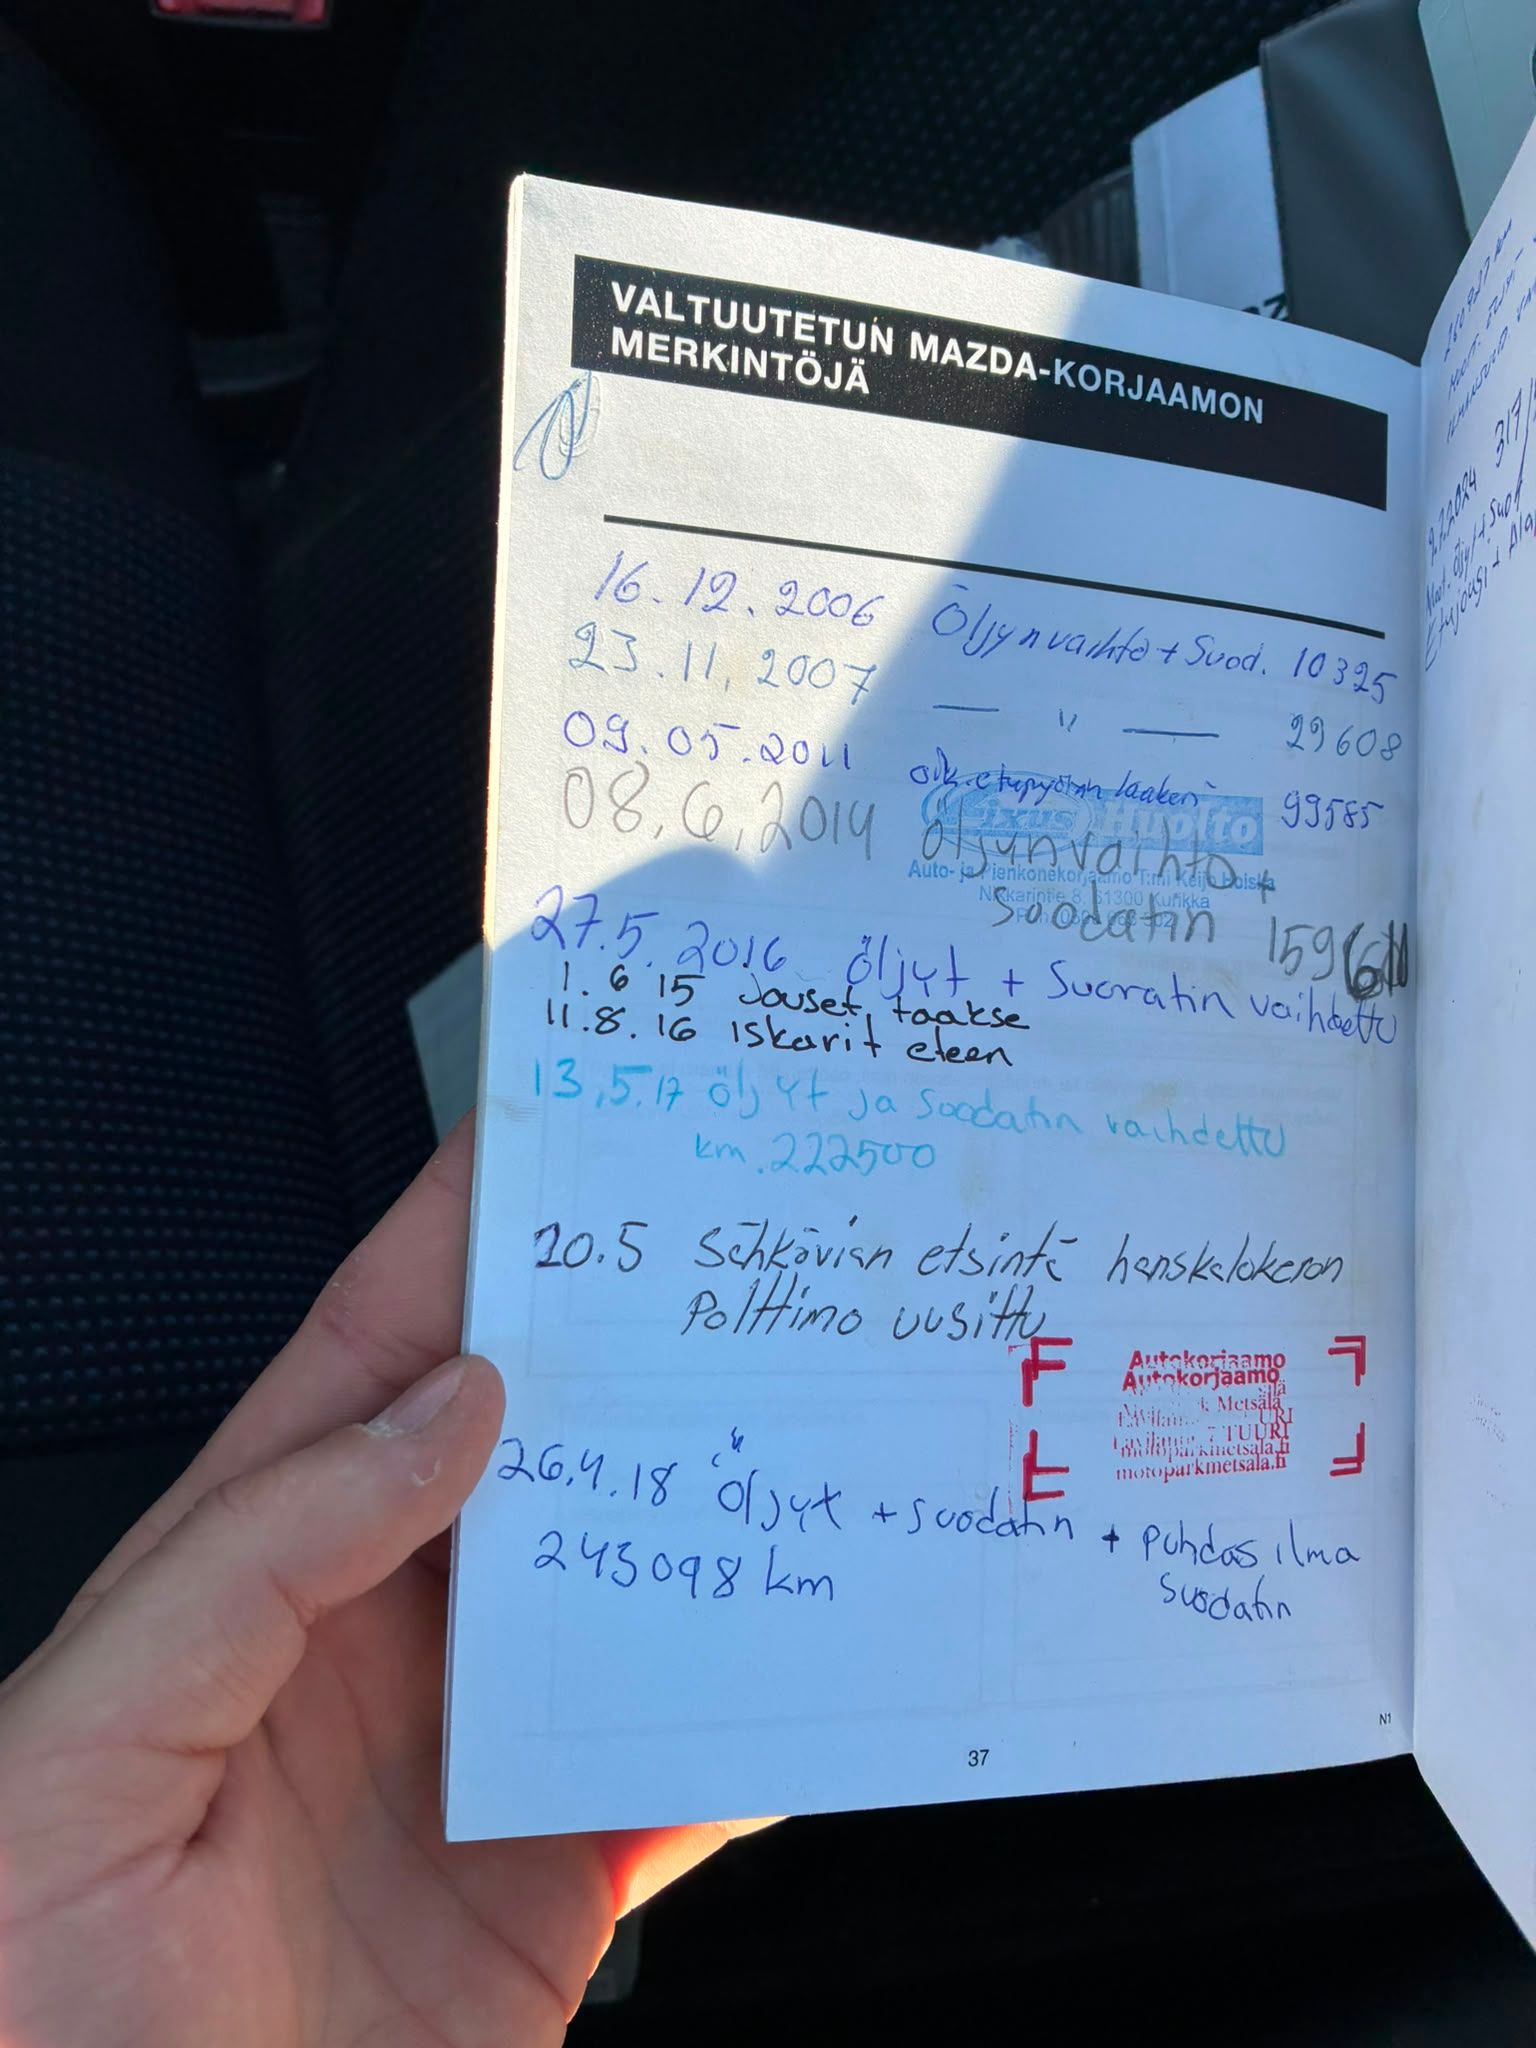 VALTUUTETUN MAZDA-KORJAAMON
MERKINTÖJÄ
16.12.2006 Öljynvaihto + Suod. 10325
23.11.2007 — " — 29608
09.05.2011 oik. etupyörän laakeri 99585
08.6.2014 öljynvaihto +
suodatin
Huolto
Auto- ja Pienkonekorjaamo T:mi Keijo Hoiska
Nikkarintie 8, 61300 Kurikka
27.5.2016 öljyt + Suoratin vaihdettu
1. 6 15 Jouset taakse
11.8.16 Iskarit eteen
13.5.17 öljyt ja suodatin vaihdettu
km.222500
20.5 Sähkövian etsintä hanskalokeron
Polttimo uusittu
Autokorjaamo
Autokorjaamo
Metsälä
TUURI
motoparkmetsala.fi
motoparkmetsala.fi
26.4.18 Öljyt + suodatin + puhdas ilma
suodatin
243098 km
N1
37
9.7.2024